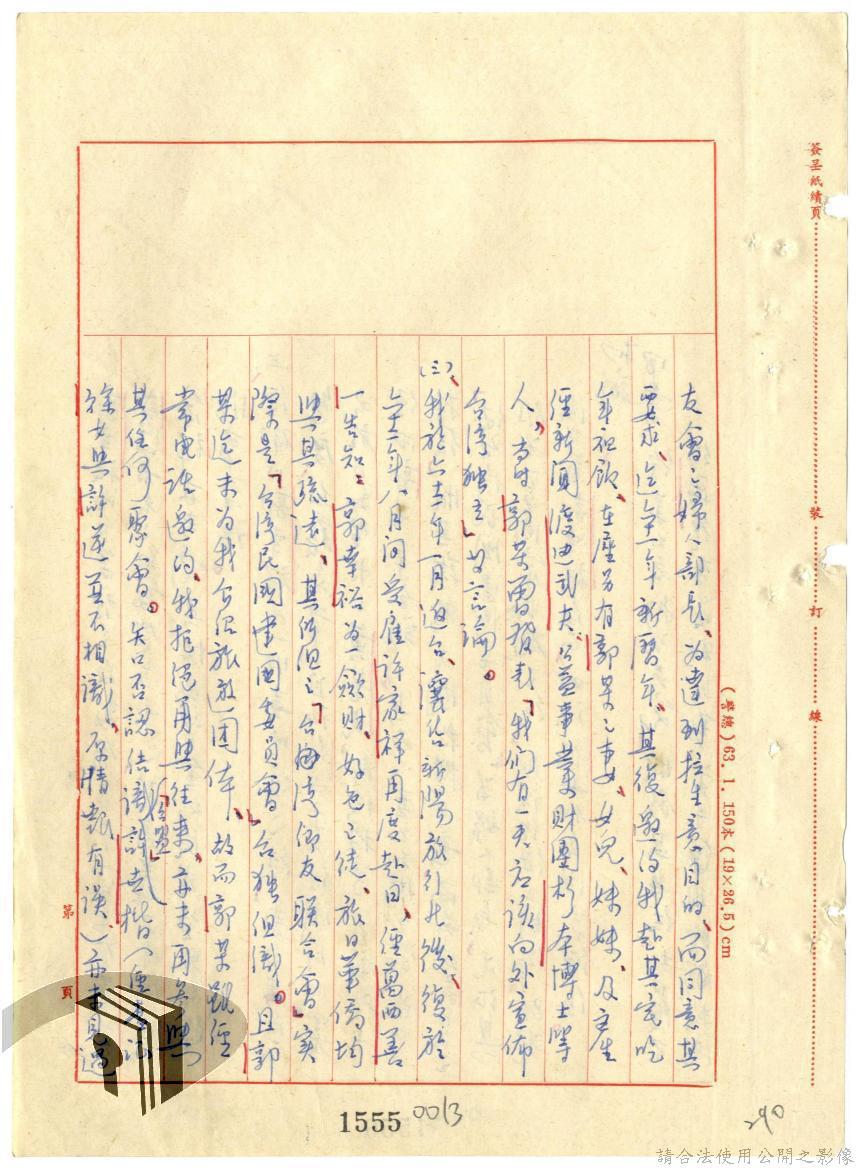 簽呈紙續頁
裝訂線
(警總) 63. 1. 150本 (19×26.5) cm
友會之婦人部長、為達到拉生意目的、而同意其
要求、迄六十一年新曆年、其復邀約我赴其宅吃
年祖飯、在座另有郭某之妻、女兒、妹妹、及產
經新聞渡邊武夫、公益事業財團杉本博士等
人、當時郭某曾發表「我們有一天應該向外宣佈
台灣獨立」等言論。
(三)、我於六十一年一月返台、讓售新陽旅行社後、復於
六十一年八月間受雇許家祥再度赴日、經葛西善
一告知：郭幸裕為一歛財、好色之徒、旅日華僑均
與其疏遠、其所組之「台灣鄉友聯合會」實
際是「台灣民國建國委員會」台獨組識。且郭
某迄未為我介紹旅遊團体、故而郭某雖經
常電話邀約、我拒絕再與往來、亦未再參與
其任何聚會。矢口否認結識許世楷(經查證
徐女與許逆並不相識、原情報有誤)亦未見過
第 頁
1555
0013
290
請合法使用公開之影像